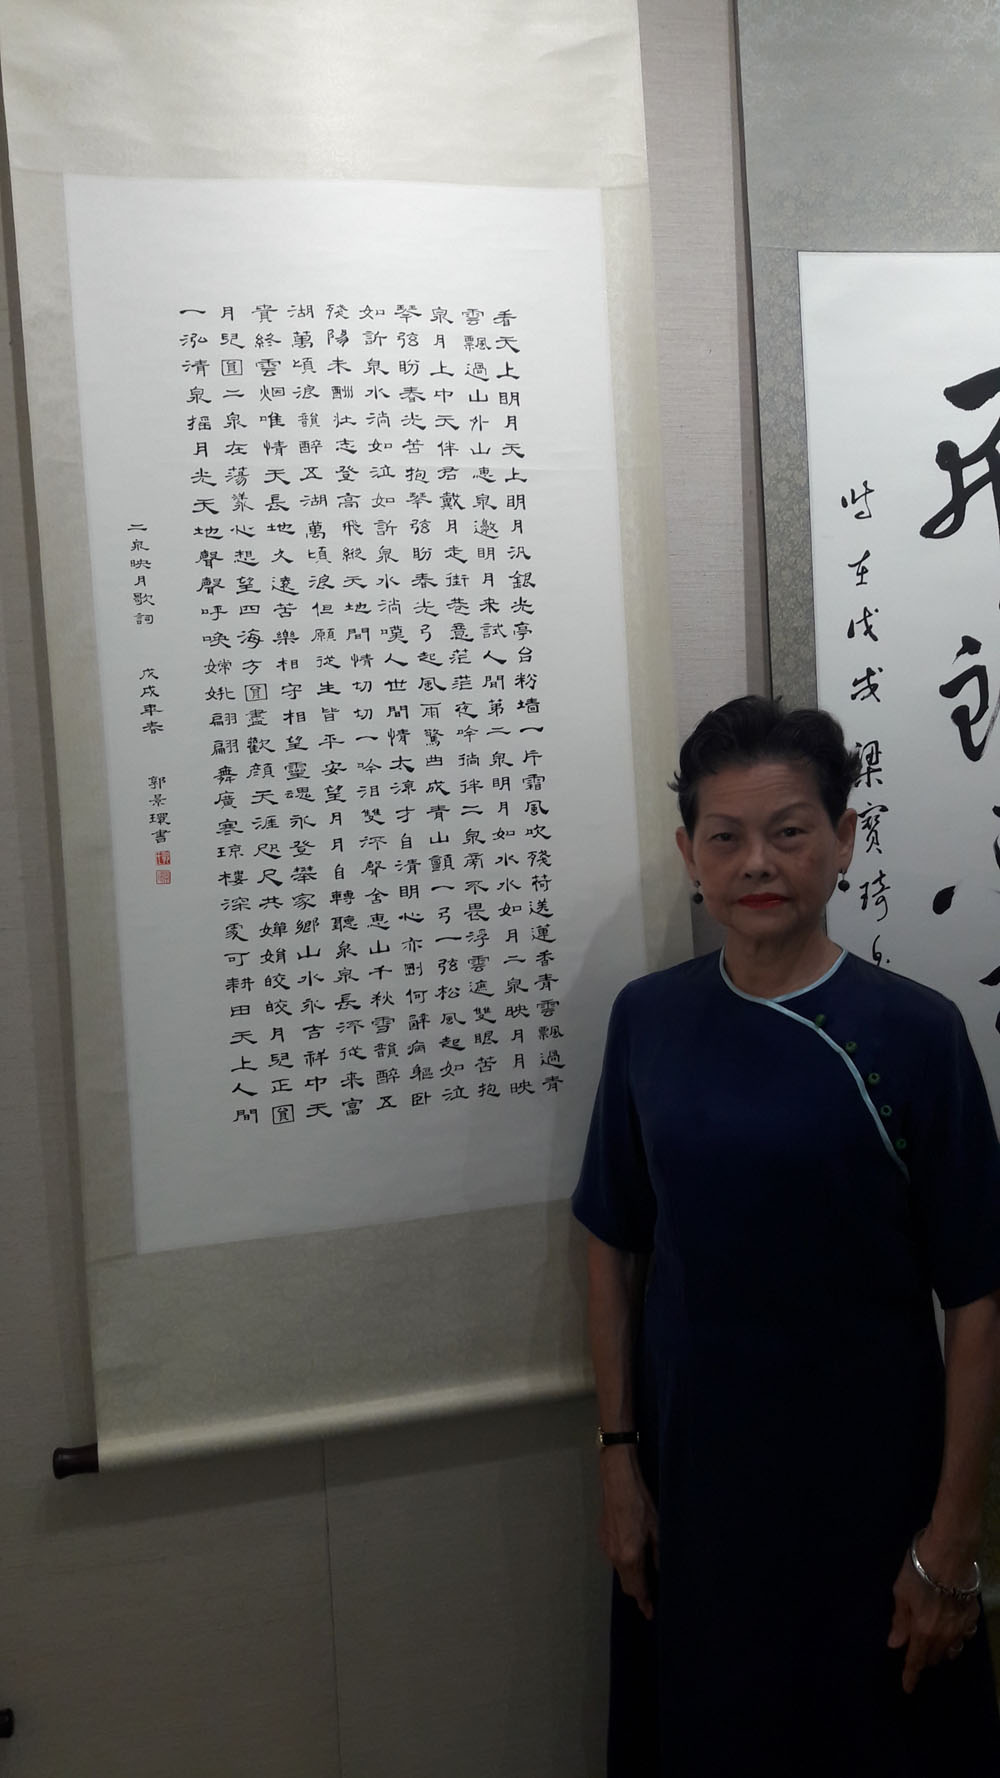 時在戊戌梁寶琦
看天上明月天上明月汎銀光亭台粉墻一片霜風吹殘荷送蓮香青雲飄過青
雲飄過山外山惠泉邀明月來試人間第二泉明月如水水如月二泉映月月映
泉月上中天伴君戴月走街巷意茫茫夜吟徜徉二泉旁不畏浮雲遮雙眼苦抱
琴弦盼春光苦抱琴弦盼春光弓起風雨驚曲成青山顫一弓一弦松風起如泣
如訴泉水淌如泣如訴泉水淌嘆人世間情太涼才自清明心亦剛何辭病軀臥
殘陽未酬壯志登高飛縱天地間情切切一吟泪雙流聲舍惠山千秋雪韻醉五
湖萬頃浪韻醉五湖萬頃浪但願從生皆平安望月月自轉聽泉泉長流從来富
貴終雲烟唯情天長地久遠苦樂相守相望靈魂永登攀家鄉山水永吉祥中天
月兒圓二泉在蕩漾心想望四海方圓盡歡顏天涯咫尺共嬋娟皎皎月兒正圓
一泓清泉搖月光天地聲聲呼喚嫦娥翩翩舞廣寒瓊樓深處可耕田天上人間
二泉映月歌詞 戊戌年春 郭景環書